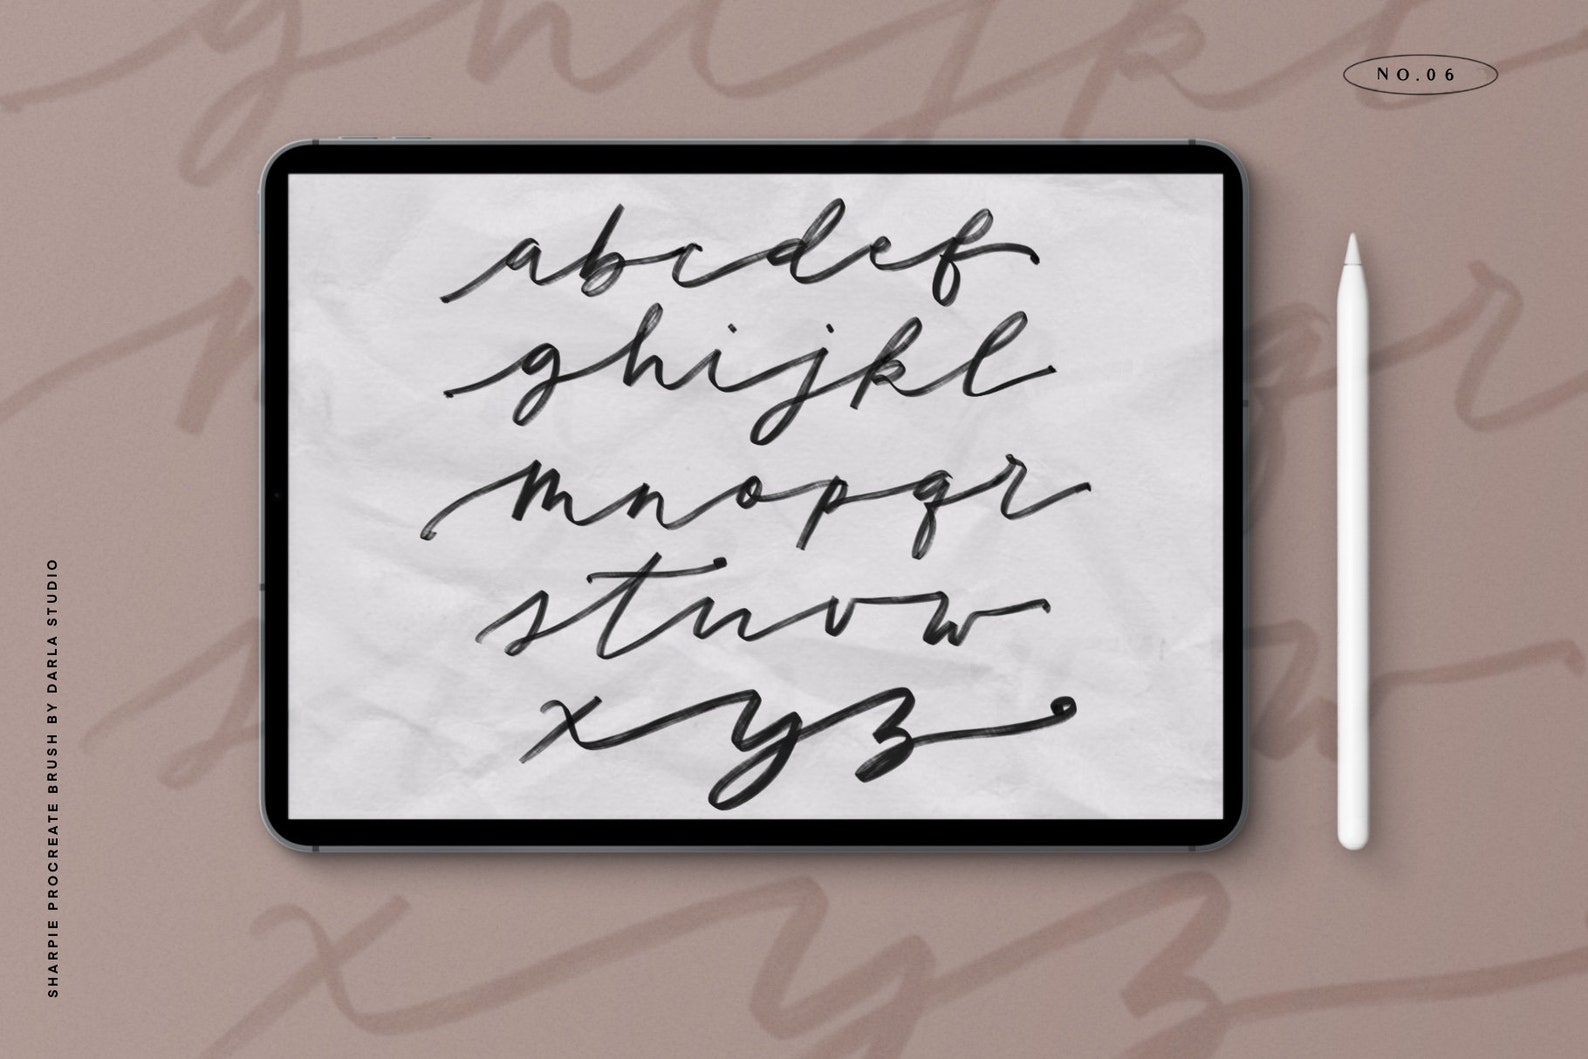 NO.06
abcdef
ghijkl
mnopqr
stuvw
xyz
SHARPIE PROCREATE BRUSH BY DARLA STUDIO